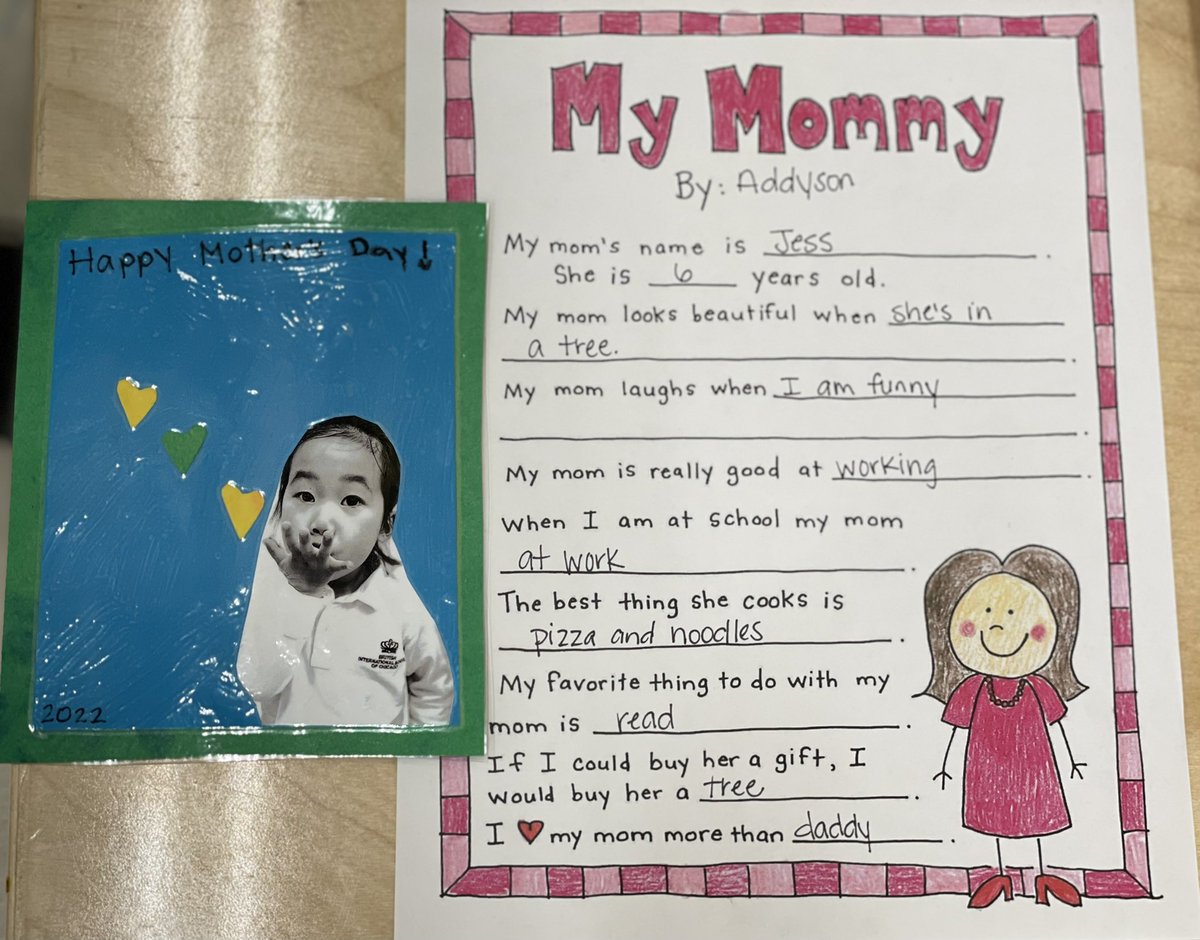 Happy Mother's Day!
BRITISH
INTERNATIONAL SCHOOL
OF CHICAGO
2022
My Mommy
By: Addyson
My mom's name is Jess.
She is 6 years old.
My mom looks beautiful when she's in
a tree.
My mom laughs when I am funny
.
My mom is really good at working.
When I am at school my mom
at work.
The best thing she cooks is
pizza and noodles.
My favorite thing to do with my
mom is read.
If I could buy her a gift, I
would buy her a tree.
I ❤ my mom more than daddy.